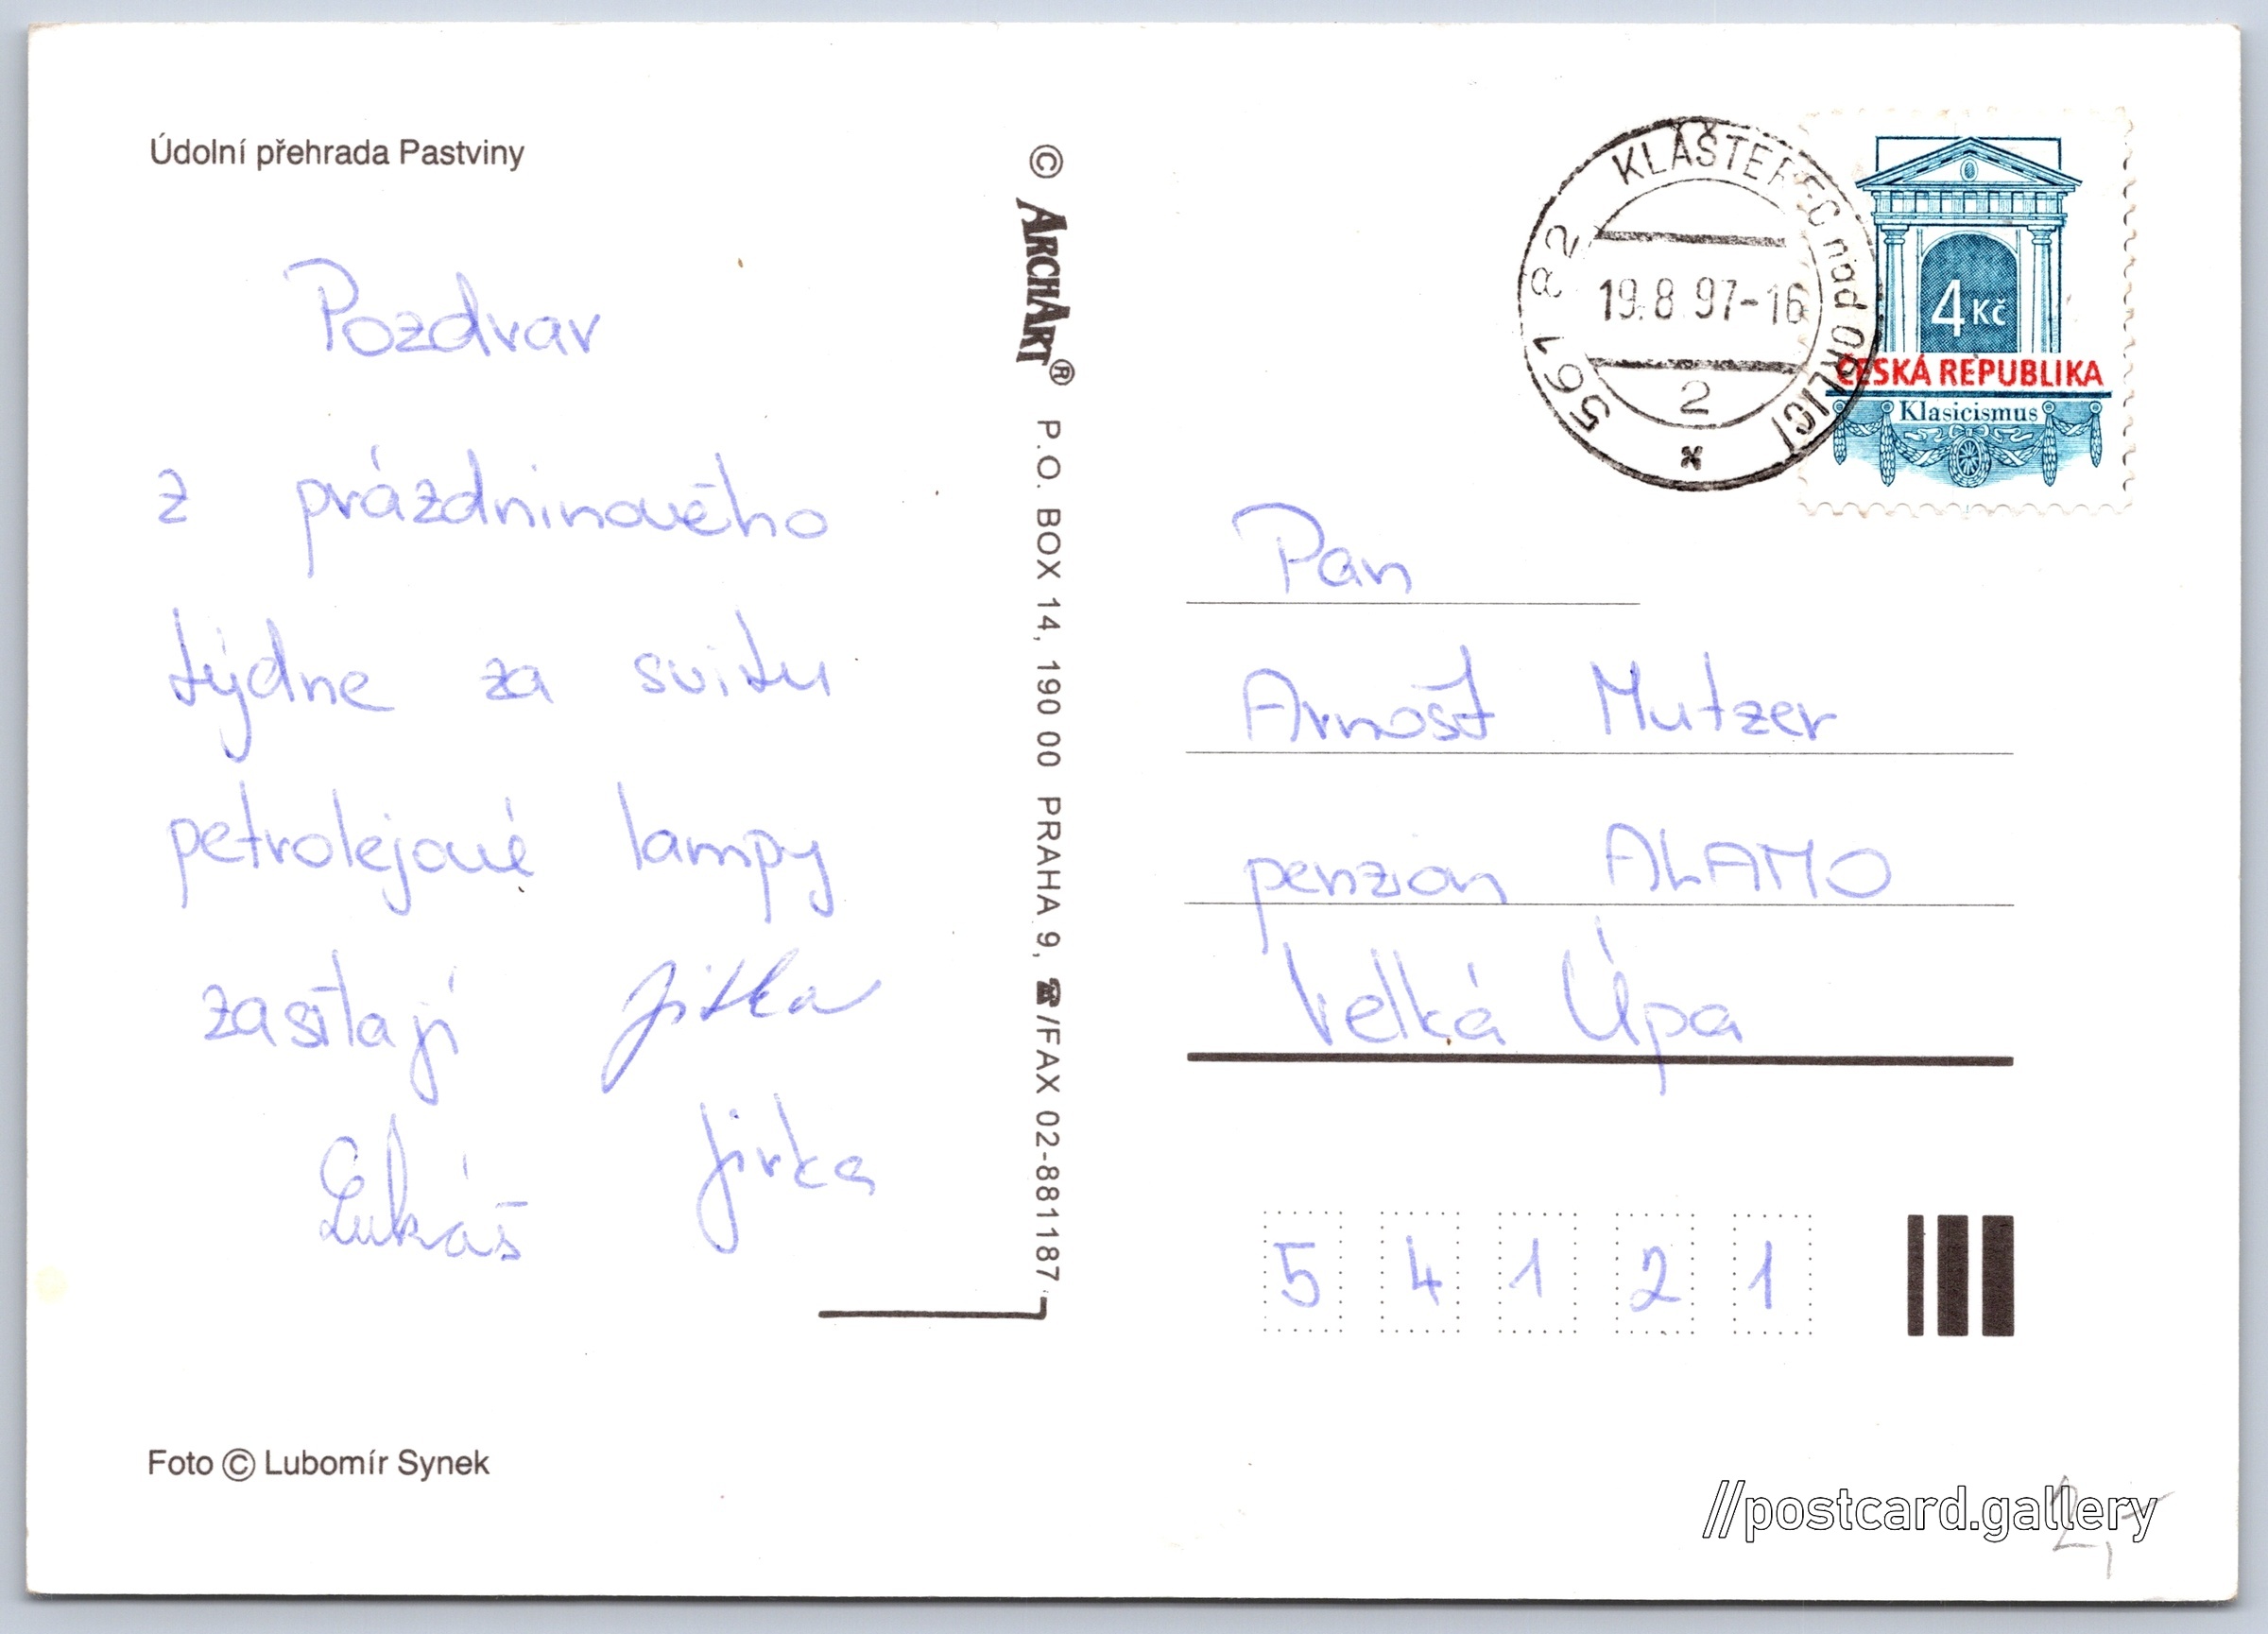 Údolní přehrada Pastviny
Pozdrav
z prázdninového
týdne za svitu
petrolejové lampy
zasílají Jitka
Jirka
Lukáš
Foto © Lubomír Synek
© ARCHART® P.O. BOX 14, 190 00 PRAHA 9, ☎/FAX 02-881187
561 82 KLÁŠTEREC nad ORLICÍ
19.8.97-16
2
4 Kč
ČESKÁ REPUBLIKA
Klasicismus
Pan
Arnošt Mutzer
penzion ALAMO
Velká Úpa
5 4 1 2 1
//postcard.gallery
2,-